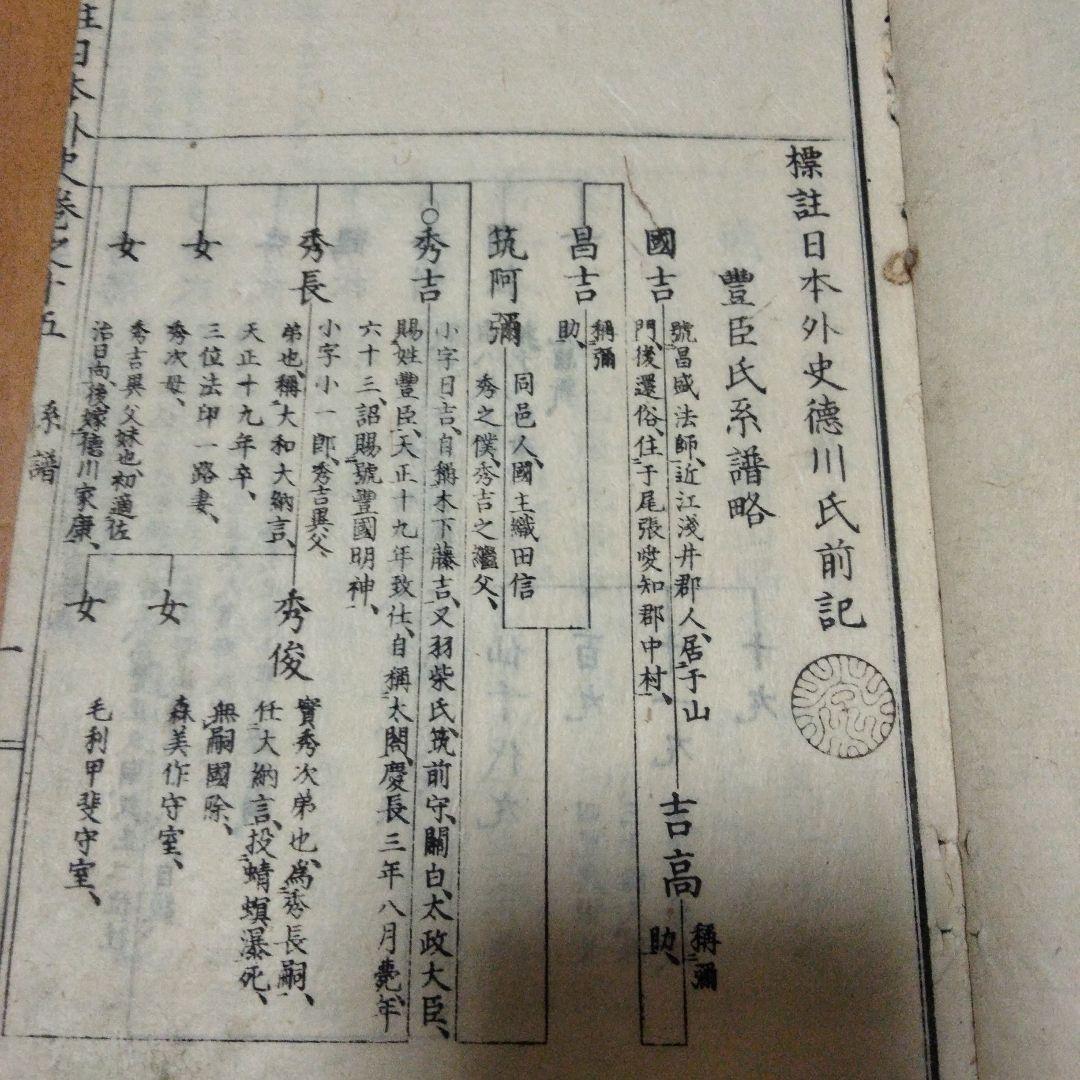 標註日本外史德川氏前記
豐臣氏系譜略
國吉
號昌盛法師、近江淺井郡人、居于山
門、後還俗、住于尾張愛知郡中村、
吉高
稱彌
助、
昌吉
稱彌
助、
筑阿彌
同邑人、國主織田信
秀之僕、秀吉之繼父、
秀吉
小字日吉、自稱木下藤吉、又羽柴氏、筑前守、關白、太政大臣、
賜姓豐臣、天正十九年致仕、自稱太閤、慶長三年八月薨、年
六十三、詔賜號豐國明神、
秀長
小字小一郎、秀吉異父
弟也、稱大和大納言、
天正十九年卒、
秀俊
實秀次弟也、爲秀長嗣、
任大納言、投蜻螟瀑死、
無嗣國除、
女
森美作守室、
女
毛利甲斐守室、
女
三位法印一路妻、
秀次母、
女
秀吉異父妹也、初適佐
治日向、後嫁德川家康、
註日本外史卷之十五
系譜
一